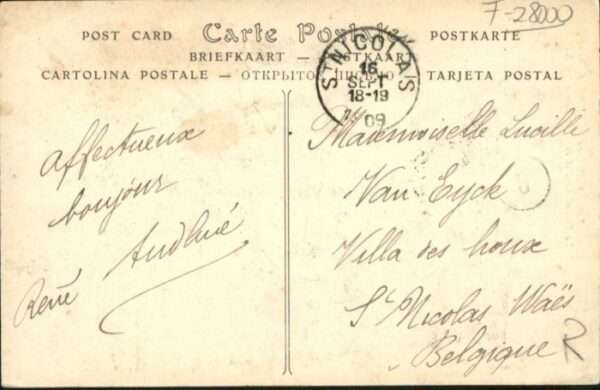 F-28000
POST CARD Carte Postale POSTKARTE
BRIEFKAART — POSTKAART
CARTOLINA POSTALE — ОТКРЫТОЕ ПИСЬМО — TARJETA POSTAL
ST NICOLAS
16
SEPT
18-19
09
Affectueux
bonjour
René
Mademoiselle Lucille
Van Eyck
Villa des houx
St Nicolas Waës
Belgique
R